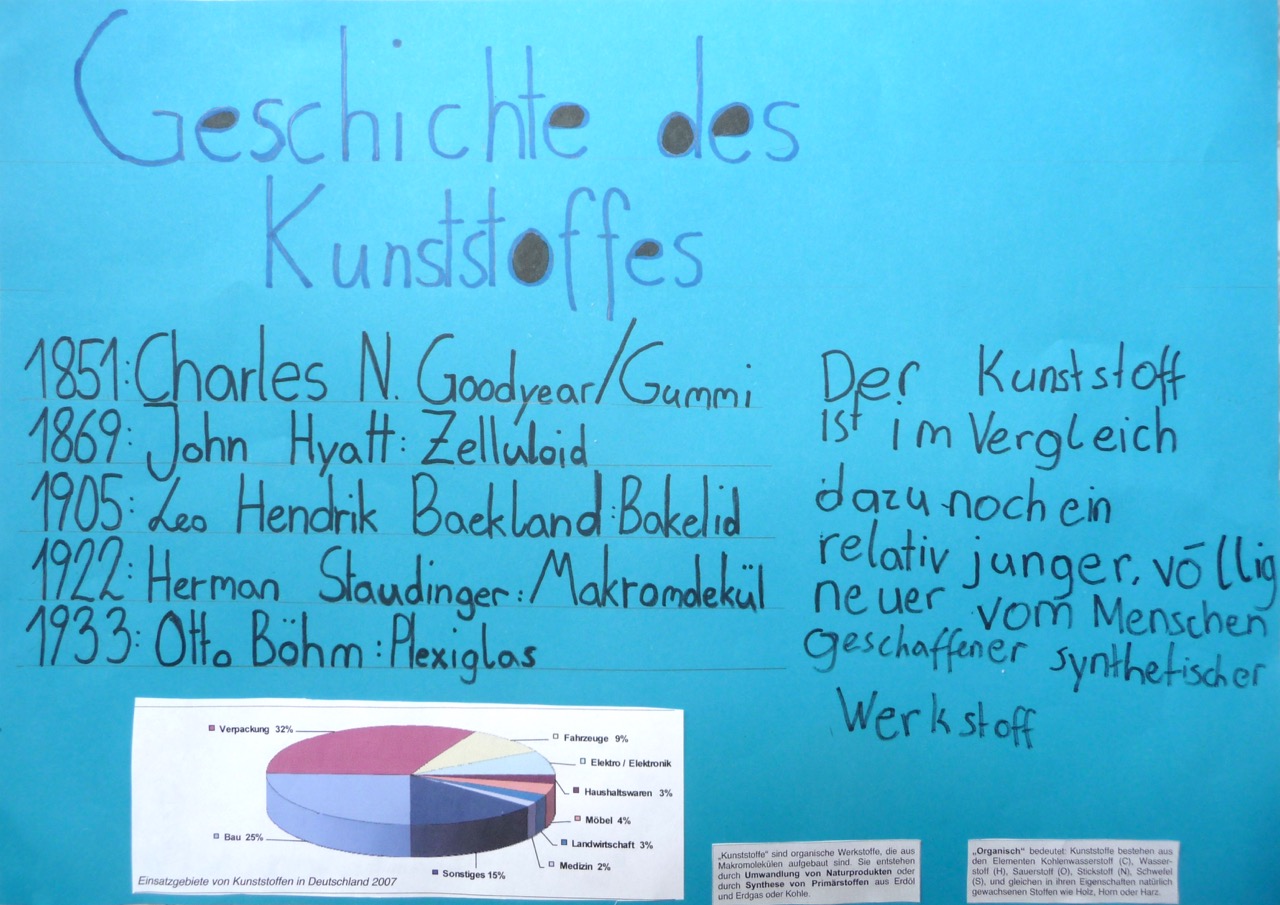 Geschichte des
Kunststoffes
1851: Charles N. Goodyear/Gummi
1869: John Hyatt: Zelluloid
1905: Leo Hendrik Baekland: Bakelid
1922: Herman Staudinger: Makromolekül
1933: Otto Böhm: Plexiglas
Der Kunststoff
ist im Vergleich
dazu noch ein
relativ junger, völlig
neuer vom Menschen
geschaffener synthetischer
Werkstoff
Verpackung 32%
Fahrzeuge 9%
Elektro / Elektronik
Haushaltswaren 3%
Möbel 4%
Landwirtschaft 3%
Medizin 2%
Sonstiges 15%
Bau 25%
Einsatzgebiete von Kunststoffen in Deutschland 2007
„Kunststoffe“ sind organische Werkstoffe, die aus
Makromolekülen aufgebaut sind. Sie entstehen
durch Umwandlung von Naturprodukten oder
durch Synthese von Primärstoffen aus Erdöl
und Erdgas oder Kohle.
„Organisch“ bedeutet: Kunststoffe bestehen aus
den Elementen Kohlenwasserstoff (C), Wasser-
stoff (H), Sauerstoff (O), Stickstoff (N), Schwefel
(S), und gleichen in ihren Eigenschaften natürlich
gewachsenen Stoffen wie Holz, Horn oder Harz.